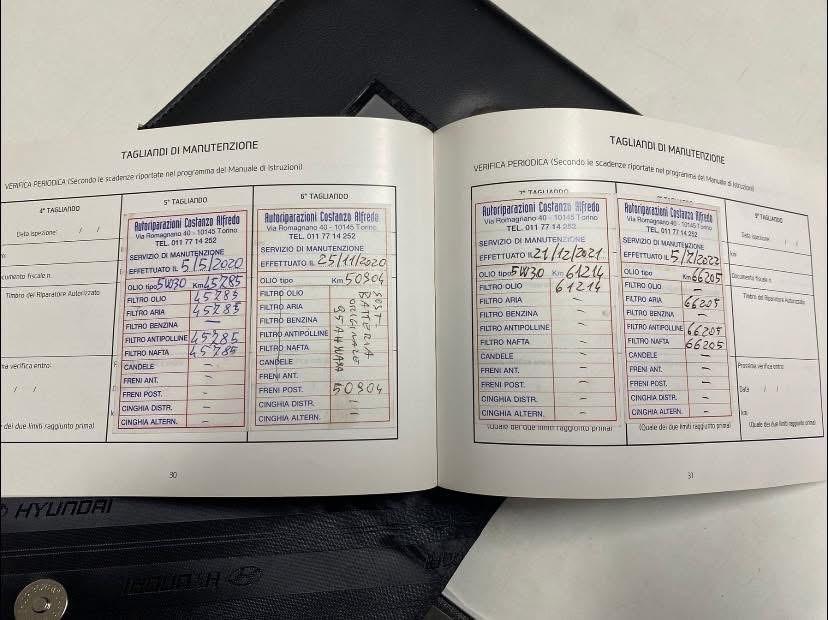 TAGLIANDI DI MANUTENZIONE
VERIFICA PERIODICA (Secondo le scadenze riportate nel programma del Manuale di Istruzioni)
4° TAGLIANDO
Data ispezione: / /
documento fiscale n.
Timbro del Riparatore Autorizzato
verifica entro:
/ /
dei due limiti raggiunto prima)
5° TAGLIANDO
Autoriparazioni Costanzo Alfredo
Via Romagnano 40 - 10145 Torino
TEL. 011 77 14 252
SERVIZIO DI MANUTENZIONE
EFFETTUATO IL 5/5/2020
OLIO tipo 5W30 Km 45785
FILTRO OLIO 45785
FILTRO ARIA 45785
FILTRO BENZINA
FILTRO ANTIPOLLINE 45785
FILTRO NAFTA 45785
CANDELE –
FRENI ANT. –
FRENI POST. –
CINGHIA DISTR. –
CINGHIA ALTERN. –
6° TAGLIANDO
Autoriparazioni Costanzo Alfredo
Via Romagnano 40 - 10145 Torino
TEL. 011 77 14 252
SERVIZIO DI MANUTENZIONE
EFFETTUATO IL 25/11/2020
OLIO tipo Km 50904
FILTRO OLIO
FILTRO ARIA
FILTRO BENZINA
FILTRO ANTIPOLLINE
FILTRO NAFTA
CANDELE
FRENI ANT.
FRENI POST. 50904
CINGHIA DISTR.
CINGHIA ALTERN.
SOST-
BATTERIA
ORIGINALE
95AH
30
TAGLIANDI DI MANUTENZIONE
VERIFICA PERIODICA (Secondo le scadenze riportate nel programma del Manuale di Istruzioni)
7° TAGLIANDO
Autoriparazioni Costanzo Alfredo
Via Romagnano 40 - 10145 Torino
TEL. 011 77 14 252
SERVIZIO DI MANUTENZIONE
EFFETTUATO IL 21/12/2021
OLIO tipo 5W30 Km 61214
FILTRO OLIO 61214
FILTRO ARIA –
FILTRO BENZINA –
FILTRO ANTIPOLLINE –
FILTRO NAFTA –
CANDELE –
FRENI ANT. –
FRENI POST. –
CINGHIA DISTR. –
CINGHIA ALTERN. –
(Quale dei due limiti raggiunto prima)
Autoriparazioni Costanzo Alfredo
Via Romagnano 40 - 10145 Torino
TEL. 011 77 14 252
SERVIZIO DI MANUTENZIONE
EFFETTUATO IL 5/7/2022
OLIO tipo Km 66205
FILTRO OLIO –
FILTRO ARIA 66205
FILTRO BENZINA –
FILTRO ANTIPOLLINE 66205
FILTRO NAFTA 66205
CANDELE –
FRENI ANT. –
FRENI POST. –
CINGHIA DISTR. –
CINGHIA ALTERN. –
(Quale dei due limiti raggiunto prima)
9° TAGLIANDO
Data ispezione: / /
km
Documento fiscale n.
Timbro del Riparatore Autorizzato
Prossima verifica entro:
Data / /
km
(Quale dei due limiti raggiunto prima)
31
HYUNDAI
HYUNDAI